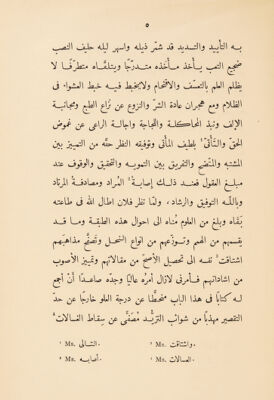 ٥
به التأييد والتسديد قد شمّر ذيله واسهر ليله حليف النصب
ضجيع التعب يأخذ مأخذه متدرّجًا ويتلقّاه متطرّفًا لا
يظلم العلم بالتعسّف والاقتحام ولا يخبط فيه خبط العشواء فى
الظلام ومع هجران عادة الشرّ والنزوع عن نزاع الطبع ومجانبة
الإلف ونبذ المحاكلة واللجاجة واجالة الراءى عن غموض
الحق والتأتّى ¹ بلطيف المأتى وتوفيقه النظر حقّه من التمييز بين
المشتبه والمتّضح والتفريق بين التمويه والتحقيق والوقوف عند
مبلغ العقول فعند ذلك إصابة ² المراد ومصادفة المرتاد
وبالله التوفيق والرشاد، ولمّا نظر فلان اطال الله فى طاعته
بقاه وبلغ من العلوم مُناه الى احوال هذه الطبقة وما قد
يقسمهم من الهمم وتوزّعهم من انواع النحل وتصفّح مذاهبهم
اشتاقت ³ نفسه الى تحصيل الأصحّ من مقالاتهم وتمييز الأصوب
من اشاداتهم فأمرنى لازال أمره عاليًا وجدّه صاعدًا أنْ أجمع
له كتابًا فى هذا الباب منحطًّا عن درجة العلو خارجًا عن حدّ
التقصير مهذّبًا من شوائب التزيُّد مُصفّى عن سقاط الغسالات ⁴
¹ Ms. التتالى
² Ms. اصابه
³ Ms. واشتاقت
⁴ Ms. العسالات